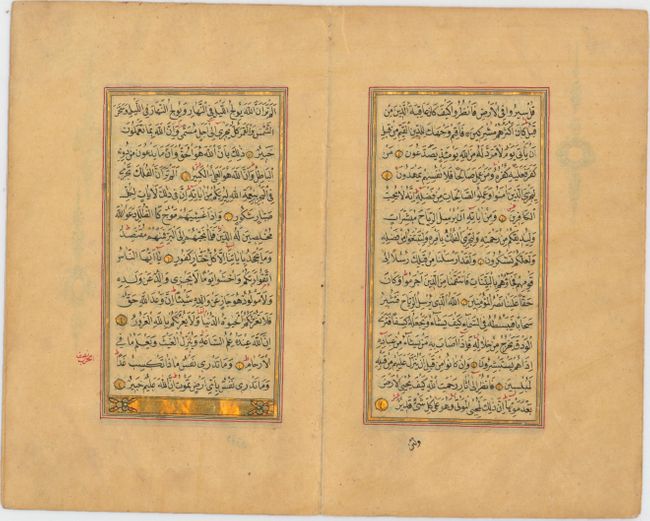 قل سيروا في الارض فانظروا كيف كان عاقبة الذين من
قبل كان اكثرهم مشركين فاقم وجهك للدين القيم من قبل
ان يأتي يوم لا مرد له من الله يومئذ يصدعون من
كفر فعليه كفره ومن عمل صالحا فلانفسهم يمهدون
ليجزي الذين امنوا وعملوا الصالحات من فضله انه لا يحب
الكافرين ومن اياته ان يرسل الرياح مبشرات
وليذيقكم من رحمته ولتجري الفلك بامره ولتبتغوا من فضله
ولعلكم تشكرون ولقد ارسلنا من قبلك رسلا الى
قومهم فجاؤهم بالبينات فانتقمنا من الذين اجرموا وكان
حقا علينا نصر المؤمنين الله الذي يرسل الرياح فتثير
سحابا فيبسطه في السماء كيف يشاء ويجعله كسفا فترى
الودق يخرج من خلاله فاذا اصاب به من يشاء من عباده
اذا هم يستبشرون وان كانوا من قبل ان ينزل عليهم من قبله
لمبلسين فانظر الى اثار رحمت الله كيف يحيي الارض
بعد موتها ان ذلك لمحيي الموتى وهو على كل شيء قدير
ولئن
الم تر ان الله يولج الليل في النهار ويولج النهار في الليل وسخر
الشمس والقمر كل يجري الى اجل مسمى وان الله بما تعملون
خبير ذلك بان الله هو الحق وان ما يدعون من دونه
الباطل وان الله هو العلي الكبير الم تر ان الفلك تجري
في البحر بنعمة الله ليريكم من اياته ان في ذلك لايات لكل
صبار شكور واذا غشيهم موج كالظلل دعوا الله
مخلصين له الدين فلما نجيهم الى البر فمنهم مقتصد
وما يجحد باياتنا الا كل ختار كفور يا ايها الناس
اتقوا ربكم واخشوا يوما لا يجزي والد عن ولده
ولا مولود هو جاز عن والده شيئا ان وعد الله حق
فلا تغرنكم الحيوة الدنيا ولا يغرنكم بالله الغرور
ان الله عنده علم الساعة وينزل الغيث ويعلم ما في
الارحام وما تدري نفس ماذا تكسب غدا
وما تدري نفس باي ارض تموت ان الله عليم خبير